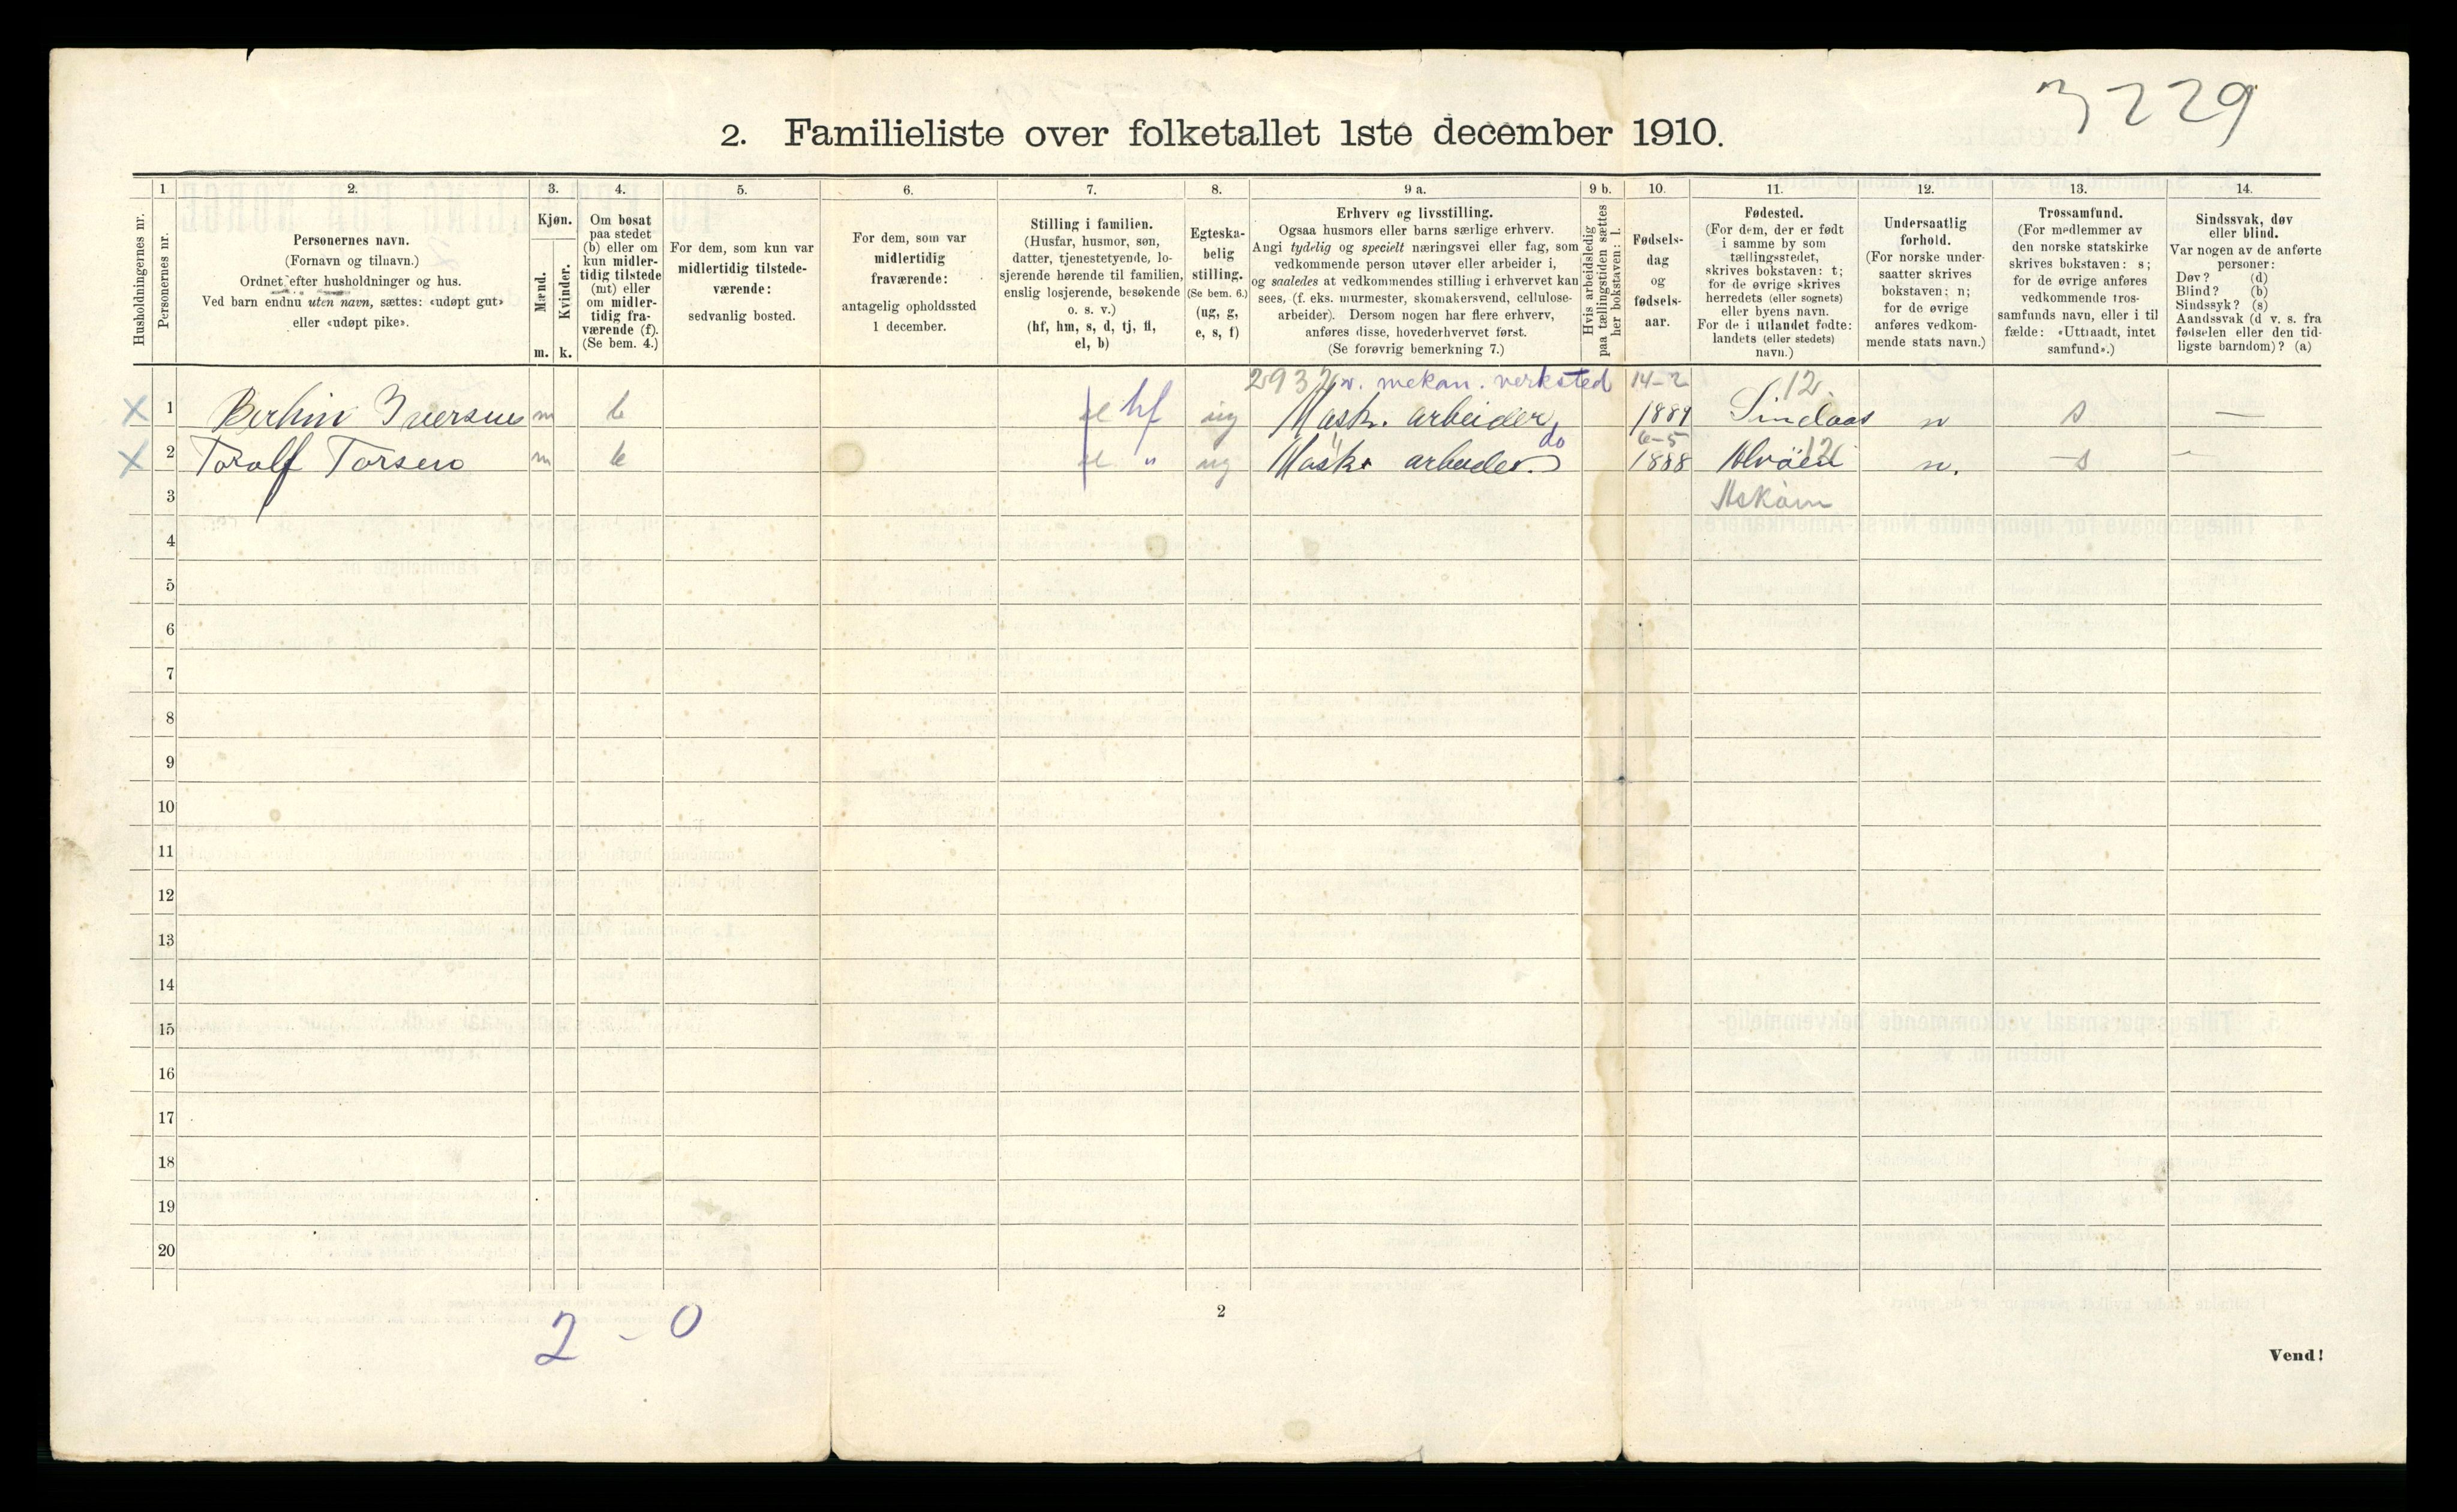 3229
2. Familieliste over folketallet 1ste december 1910.
Husholdningernes nr.
1
Personernes nr.
2.
Personernes navn.
(Fornavn og tilnavn.)
Ordnet efter husholdninger og hus.
Ved barn endnu uten navn, sættes: «udøpt gut»
eller «udøpt pike».
3.
Kjøn.
Mænd.
m.
Kvinder.
k.
4.
Om bosat
paa stedet
(b) eller om
kun midler-
tidig tilstede
(mt) eller
om midler-
tidig fra-
værende (f).
(Se bem. 4.)
5.
For dem, som kun var
midlertidig tilstede-
værende:
sedvanlig bosted.
6.
For dem, som var
midlertidig
fraværende:
antagelig opholdssted
1 december.
7.
Stilling i familien.
(Husfar, husmor, søn,
datter, tjenestetyende, lo-
sjerende hørende til familien,
enslig losjerende, besøkende
o. s. v.)
(hf, hm, s, d, tj, fl,
el, b)
8.
Egteska-
belig
stilling.
(Se bem. 6.)
(ug, g,
e, s, f)
9 a.
Erhverv og livsstilling.
Ogsaa husmors eller barns særlige erhverv.
Angi tydelig og specielt næringsvei eller fag, som
vedkommende person utøver eller arbeider i,
og saaledes at vedkommendes stilling i erhvervet kan
sees, (f. eks. murmester, skomakersvend, cellulose-
arbeider). Dersom nogen har flere erhverv,
anføres disse, hovederhvervet først.
(Se forøvrig bemerkning 7.)
9 b.
Hvis arbeidsledig
paa tællingstiden sættes
her bokstaven: l.
10.
Fødsels-
dag
og
fødsels-
aar.
11.
Fødested.
(For dem, der er født
i samme by som
tællingsstedet,
skrives bokstaven: t;
for de øvrige skrives
herredets (eller sognets)
eller byens navn.
For de i utlandet fødte:
landets (eller stedets)
navn.)
12.
Undersaatlig
forhold.
(For norske under-
saatter skrives
bokstaven: n;
for de øvrige
anføres vedkom-
mende stats navn.)
13.
Trossamfund.
(For medlemmer av
den norske statskirke
skrives bokstaven: s;
for de øvrige anføres
vedkommende tros-
samfunds navn, eller i til
fælde: «Uttraadt, intet
samfund».)
14.
Sindssvak, døv
eller blind.
Var nogen av de anførte
personer:
Døv? (d)
Blind? (b)
Sindssyk? (s)
Aandssvak (d v. s. fra
fødselen eller den tid-
ligste barndom)? (a)
v. mekan. verksted 14-2 12
X 1 Iversen m b hf ug Mask. arbeider n s —
do 6-5
X 2 Toralf Torsen m b " ug Mask. arbeider 1888 Alvøen n. s
3 Askøen
4
5
6
7
8
9
10
11
12
13
14
15
16
17
18
19
20
2 - 0
2
Vend!